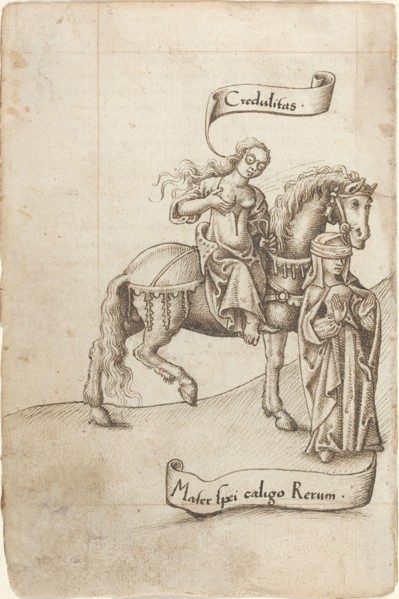 Credulitas.
Mater spei caligo Rerum.